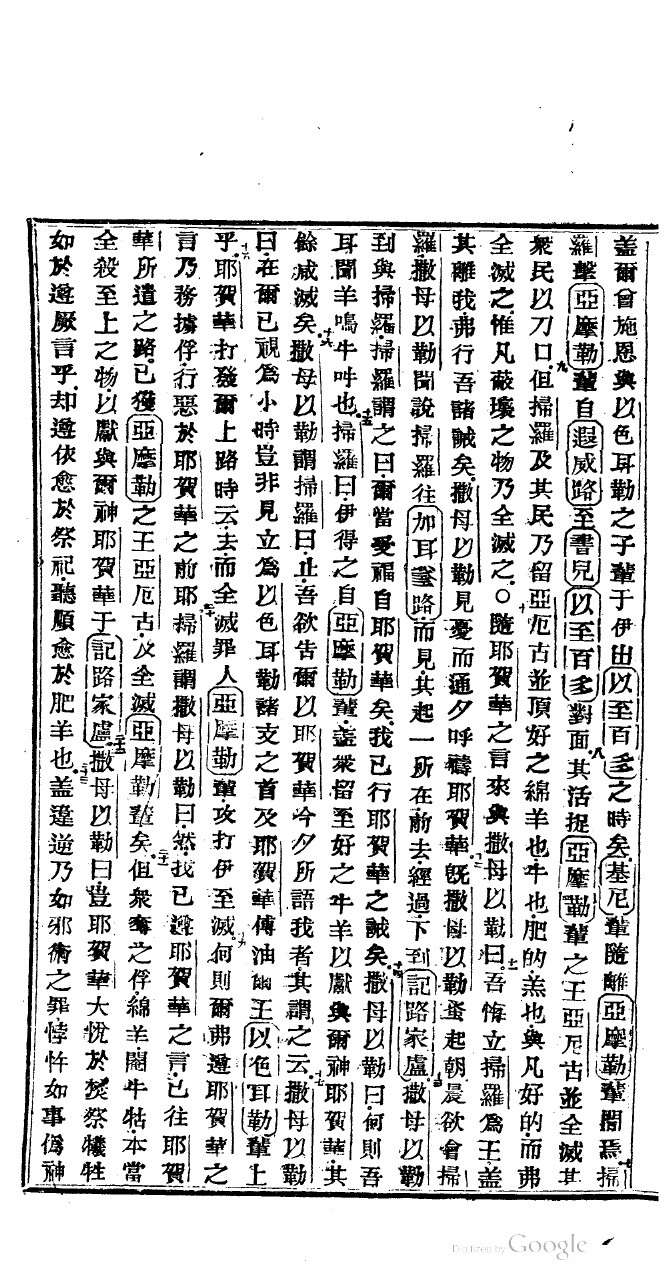 盖爾曾施恩與以色耳勒之子輩于伊出以至百多之時矣基尼輩隨離亞摩勒輩間焉七掃
羅擊亞摩勒輩自遐威路至書兒以至百多對面八其活捉亞摩勒輩之王亞厄古並全滅其
衆民以刀口九但掃羅及其民乃留亞厄古並頂好之綿羊也牛也肥的羔也與凡好的而弗
全滅之惟凡蔽壞之物乃全滅之○十隨耶賀華之言來與撒母以勒曰十一吾悔立掃羅爲王盖
其離我弗行吾諸誡矣撒母以勒見憂而通夕呼禱耶賀華十二旣撒母以勒蚤起朝晨欲會掃
羅撒母以勒聞說掃羅往加耳篾路而見其起一所在前去經過下到記路家盧十三撒母以勒
到與掃羅掃羅謂之曰爾當受福自耶賀華矣我已行耶賀華之誡矣十四撒母以勒曰何則吾
耳聞羊鳴牛吽也十五掃羅曰伊得之自亞摩勒輩盖衆留至好之牛羊以獻與爾神耶賀華其
餘咸滅矣十六撒母以勒謂掃羅曰止吾欲告爾以耶賀華今夕所語我者其謂之云十七撒母以勒
曰在爾已視爲小時豈非見立爲以色耳勒諸支之首及耶賀華傅油爾王以色耳勒輩上
乎十八耶賀華打發爾上路時云去而全滅罪人亞摩勒輩攻打伊至滅十九何則爾弗遵耶賀華之
言乃務擄俘行惡於耶賀華之前耶二十掃羅謂撒母以勒曰然我已遵耶賀華之言已往耶賀
華所遣之路已獲亞摩勒之王亞厄古及全滅亞摩勒輩矣二十一但衆奪之俘綿羊閹牛牯本當
全殺至上之物以獻與爾神耶賀華于記路家盧二十二撒母以勒曰豈耶賀華大悅於焚祭犧牲
如於遵厥言乎却遵依愈於祭祀聽順愈於肥羊也二十三盖違逆乃如邪術之罪悖忤如事僞神
Digitized by Google